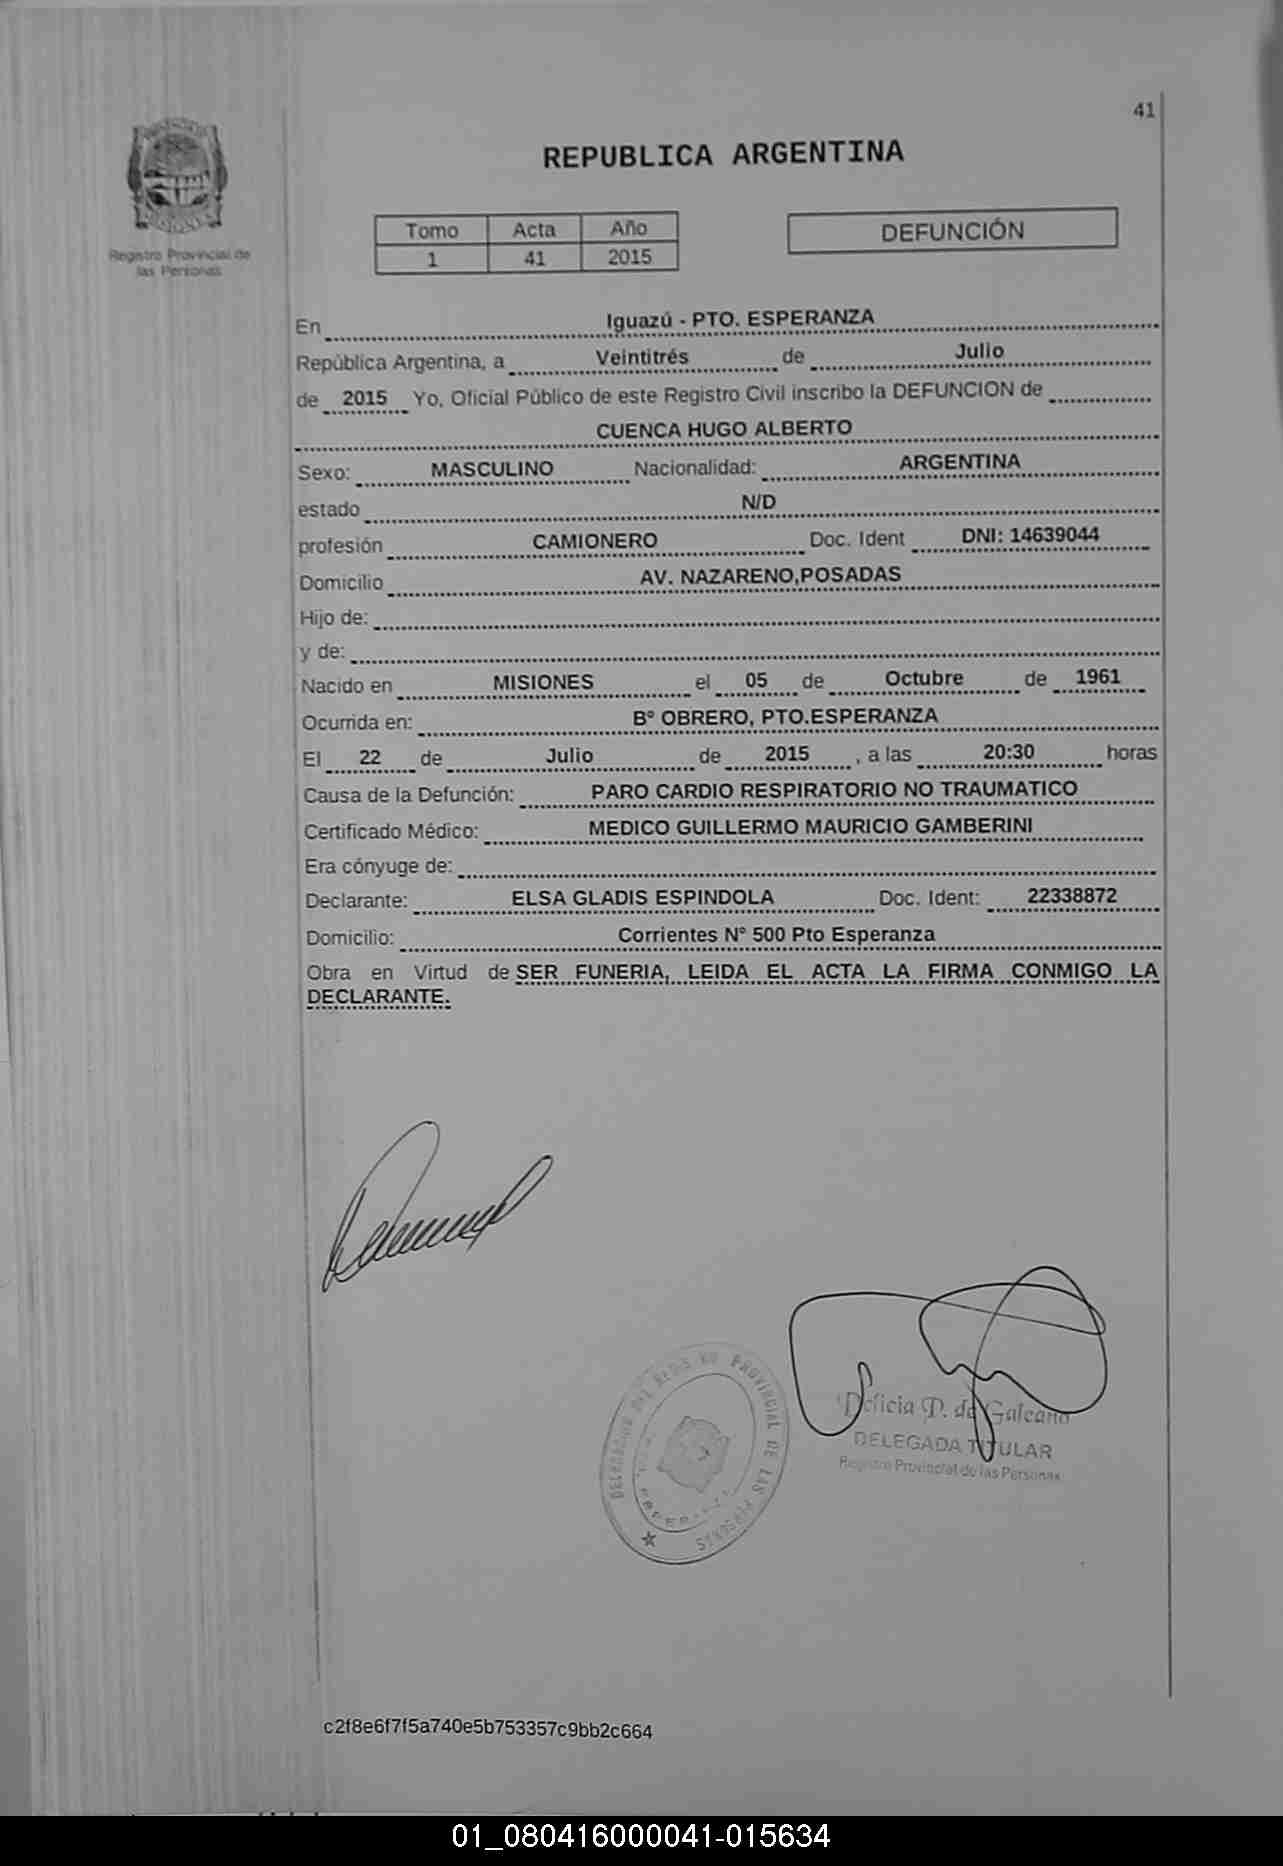 41
REPUBLICA ARGENTINA
Registro Provincial de
las Personas
Tomo Acta Año
1 41 2015
DEFUNCIÓN
En Iguazú - PTO. ESPERANZA
República Argentina, a Veintitrés de Julio
de 2015 Yo, Oficial Público de este Registro Civil inscribo la DEFUNCION de
CUENCA HUGO ALBERTO
Sexo: MASCULINO Nacionalidad: ARGENTINA
estado N/D
profesión CAMIONERO Doc. Ident DNI: 14639044
Domicilio AV. NAZARENO,POSADAS
Hijo de:
y de:
Nacido en MISIONES el 05 de Octubre de 1961
Ocurrida en: Bº OBRERO, PTO.ESPERANZA
El 22 de Julio de 2015 , a las 20:30 horas
Causa de la Defunción: PARO CARDIO RESPIRATORIO NO TRAUMATICO
Certificado Médico: MEDICO GUILLERMO MAURICIO GAMBERINI
Era cónyuge de:
Declarante: ELSA GLADIS ESPINDOLA Doc. Ident: 22338872
Domicilio: Corrientes N° 500 Pto Esperanza
Obra en Virtud de SER FUNERIA, LEIDA EL ACTA LA FIRMA CONMIGO LA
DECLARANTE.
PROVINCIAL DE LAS PERSONAS
Delicia P. de Galeano
DELEGADA TITULAR
Registro Provincial de las Personas
c2f8e6f7f5a740e5b753357c9bb2c664
01_080416000041-015634